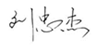 刘忠杰